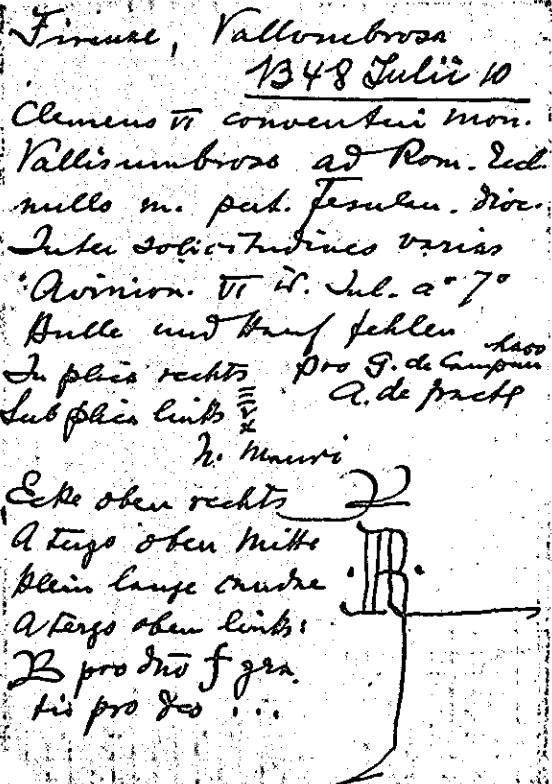 Firenze, Vallombrosa
1348 Iulii 10
Clemens VI conventui mon.
Vallisumbrose ad Rom. Eccl.
nullo m. pert. Fesulan. dioc.
Inter solicitudines varias
Avinion. VI id. Iul. a° 7°
Bulle und Hanf fehlen
In plica rechts pro G. de Campan
A. de
Sub plica links
N. Mauri
Ecke oben rechts
A tergo oben Mitte
klein lange
A tergo oben links:
B pro dno f gra
tis pro deo ...